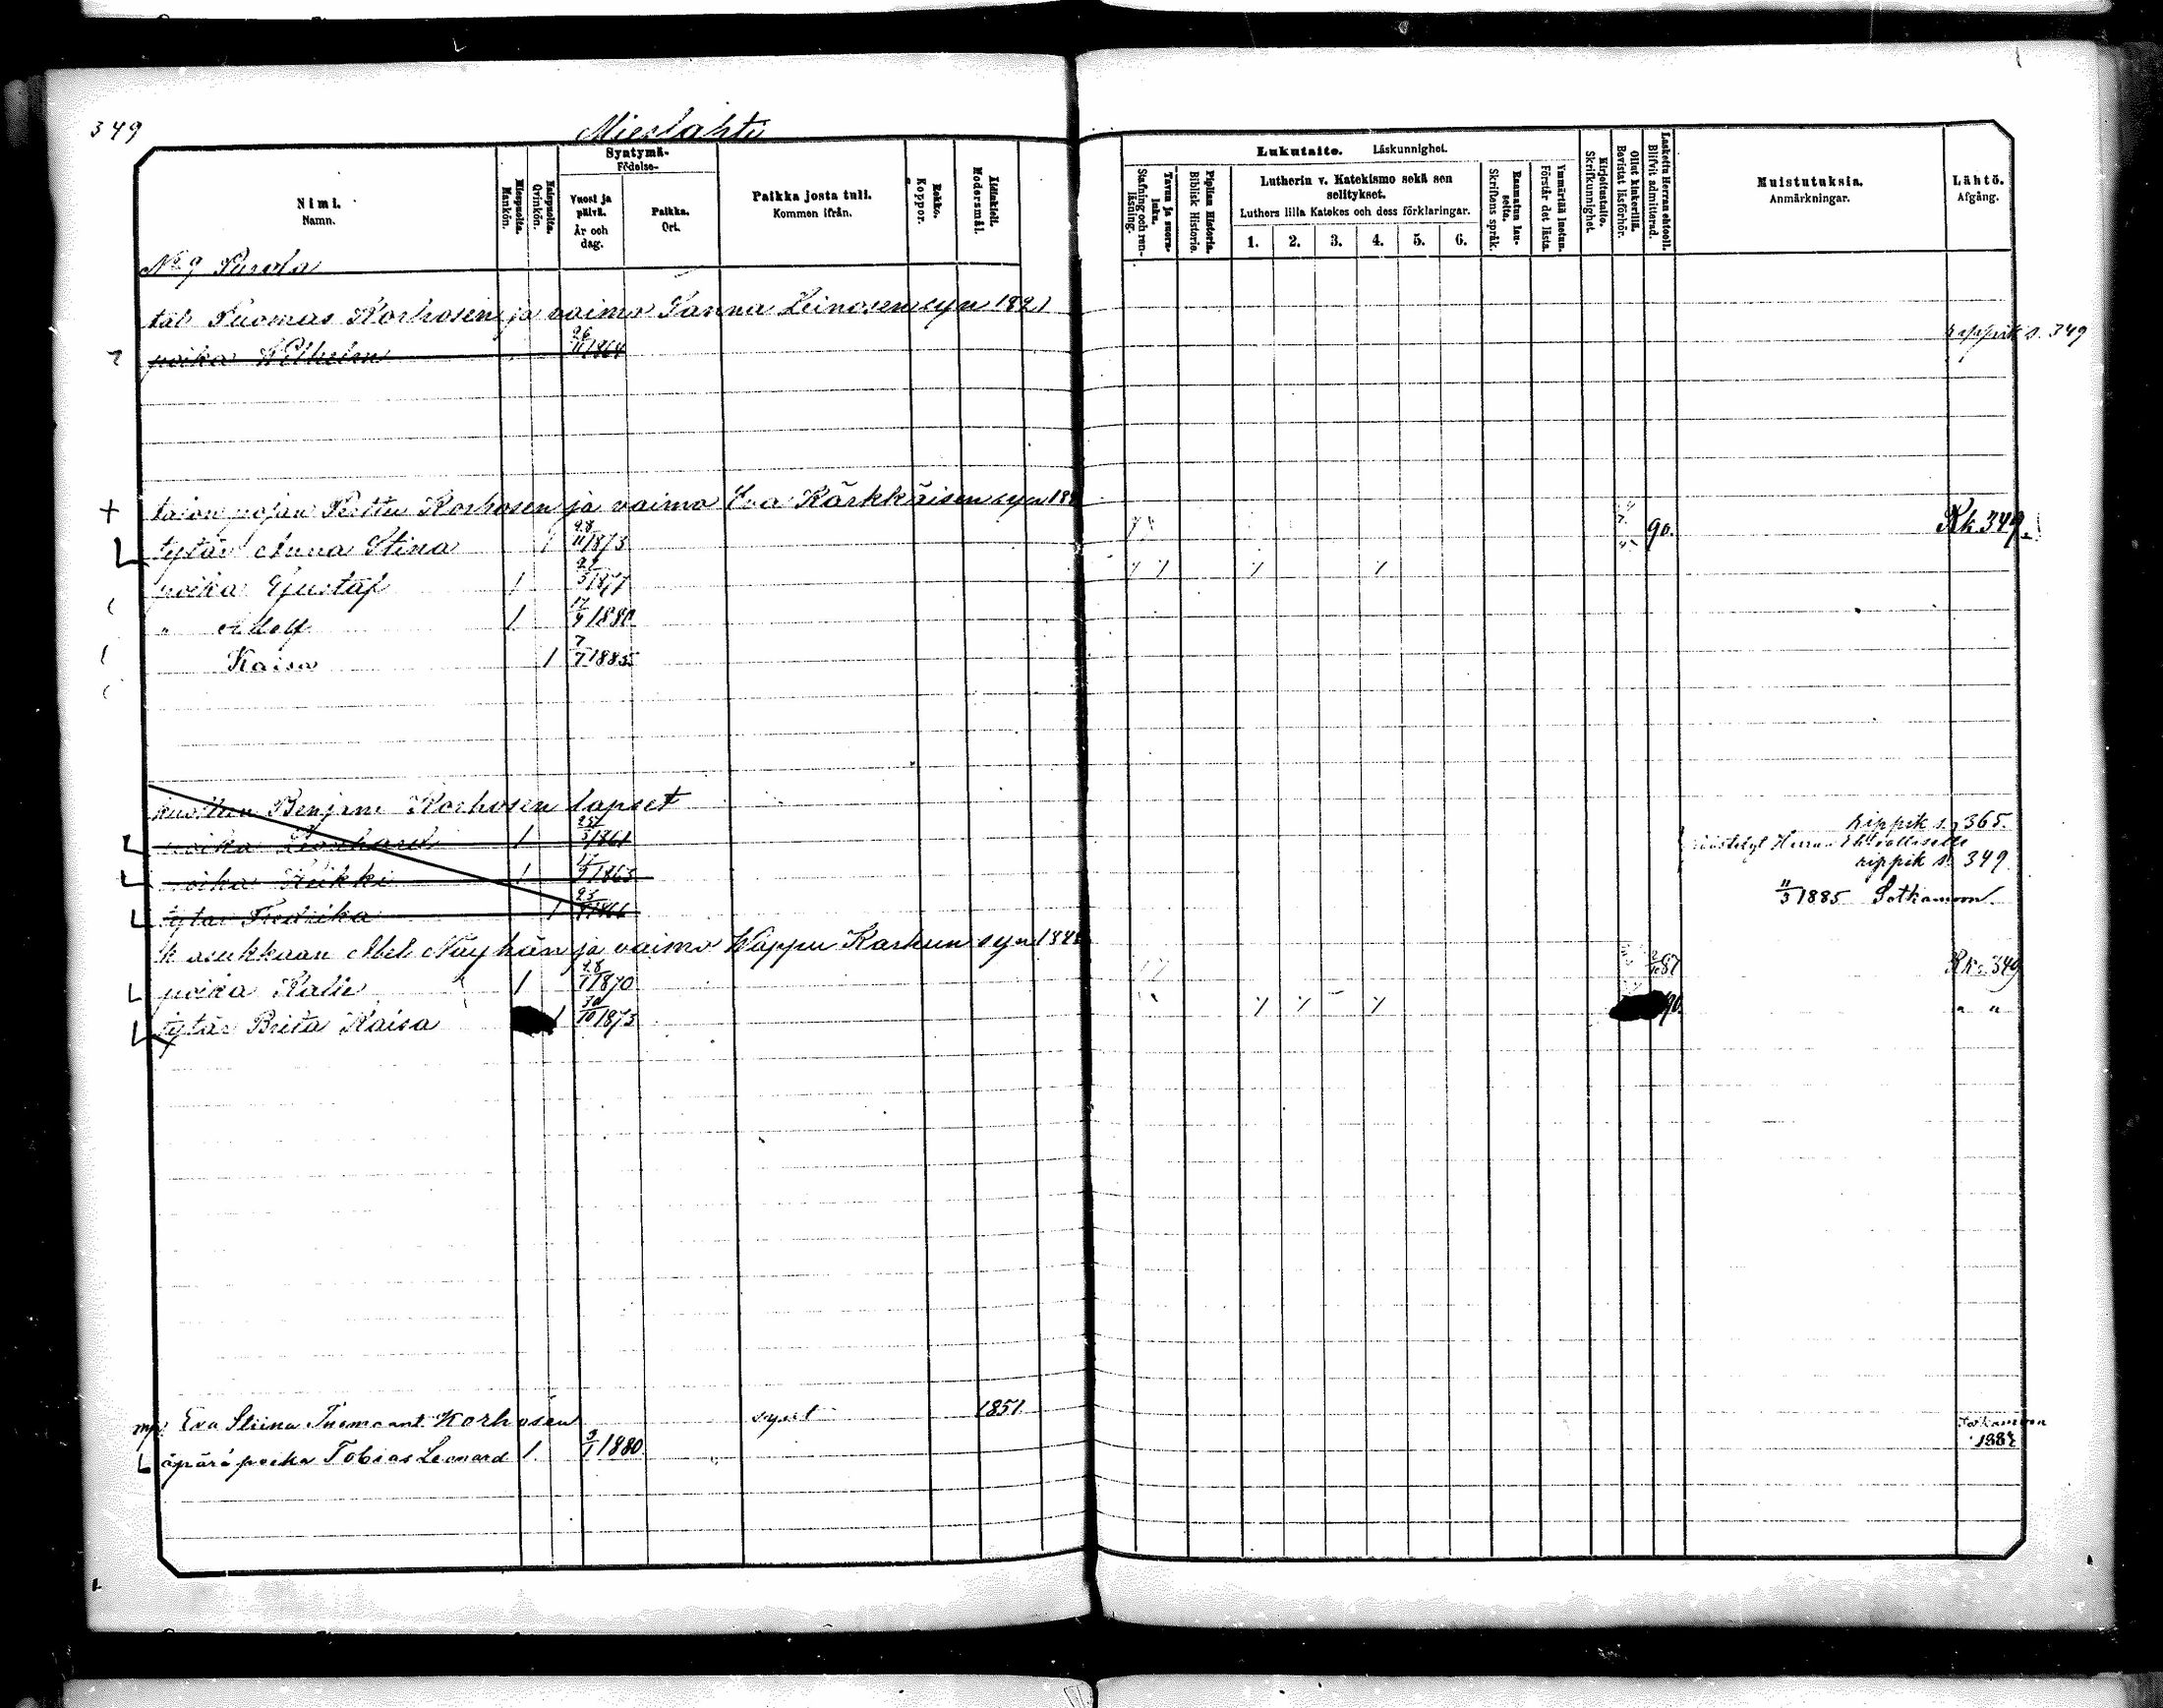 349
Mieslahti
Nimi.
Namn.
Miespuolta.
Mankön.
Naispuolta.
Qvinkön.
Syntymä-
Födelse-
Vuosi ja päivä.
År och dag.
Paikka.
Ort.
Paikka josta tuli.
Kommen ifrån.
Rokko.
Koppor.
Äidinkieli.
Modersmål.
Lukutaito. Läskunnighet.
Tavuu ja suora-luku.
Stafning och ren-läsning.
Piplian Historia.
Biblisk Historie.
Lutherin v. Katekismo sekä sen selitykset.
Luthers lilla Katekes och dess förklaringar.
1. 2. 3. 4. 5. 6.
Raamatun lau-seita.
Skriftens språk.
Ymmärtää luetun.
Förstår det lästa.
Kirjoitustaito.
Skrifkunnighet.
Ollut kinkerillä.
Bevistat läsförhör.
Laskettu Herran ehtooll.
Blifvit admitterad.
Muistutuksia.
Anmärkningar.
Lähtö.
Afgång.
No 9 Purola
tal. Tuomas Korhosen ja vaimo Sanna Leinosen syn 1821
poika Wilhelm 26/11 1864 rippik s. 349
talon pojan Pettu Korhosen ja vaimo Eva Kärkkäisen syn 18
tytär Anna Stina 1 28/11 1873 90. Rk 349
poika Gustaf 1 1877
" Adolf 1 17/9 1880
Kaisa 1 7/7 1885
Benjam Korhosen lapset
poika Leonhard 1 1861 rippik s. 365.
Herran
poika Heikki 1 17/9 1863 rippik s. 349
tytär Fredrika 1 23 1866 11/3 1885 Sotkamoon.
k asukkaan Abel Näyhän ja vaimo Wappu Karhun syn 184
poika Kalle 1 28/1 1870 87 Rk s. 349
tytär Brita Kaisa 1 30/10 1873 90. " "
Eva Stiina Tuom ant. Korhosen synt 1851 Sotkamoon
äpärä poika Tobias Leonard 1. 3/1 1880. 1887